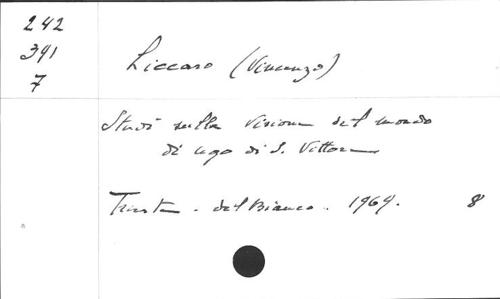 242
391
7
Liccaro (Vincenzo)
Studi sulla visione del mondo
di Ugo di S. Vittore
Trieste - del Bianco - 1969.
8